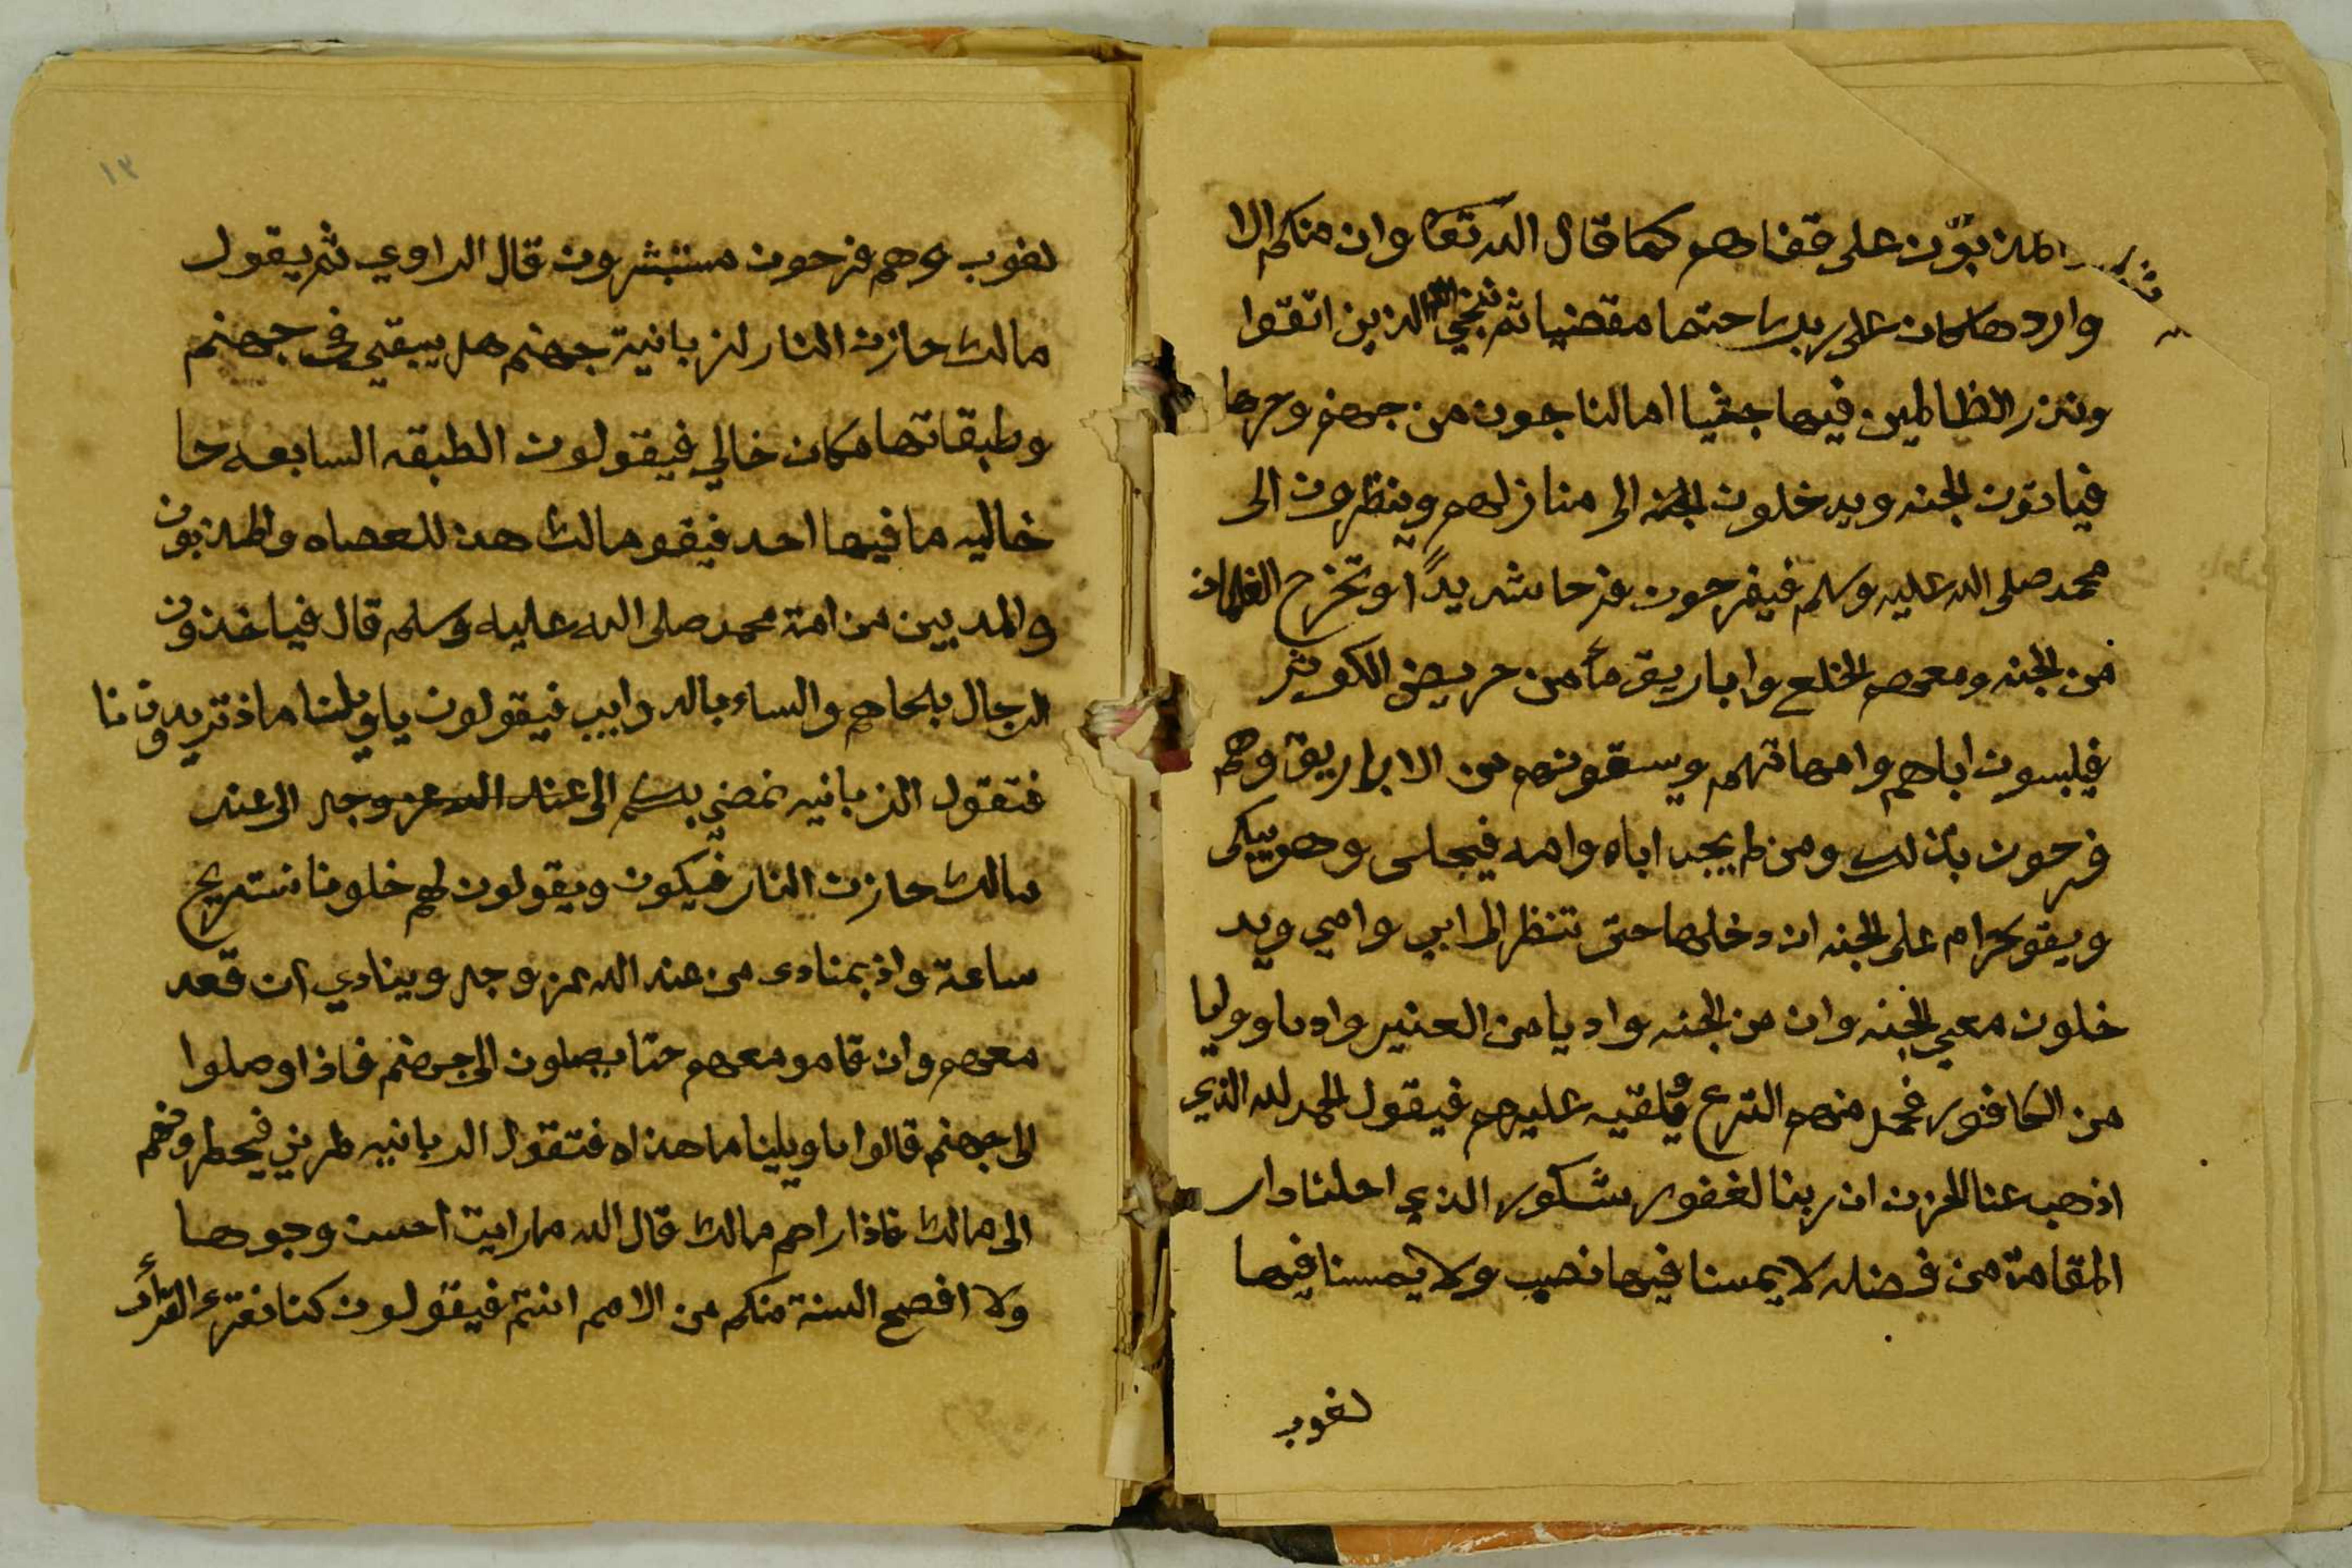 المذبوّن على قفاهم كما قال الله تعا وان منكم الا
واردها كان على ربك حتما مقضيا ثم ننجي الذين اتقوا
ونذر الظالمين فيها جثيا اما الناجون من جهنم وحرها
فياتون الجنه ويدخلون الجنه الى منازلهم وينظرون الى
محمد صلى الله عليه وسلم فيفرحون فرحا شديدًا وتخرج الغلمان
من الجنه ومعهم الخلع واباريق مآ من حريض الكوثر
فيلبسون اباهم وامهاتهم ويسقونهم من الابراريق وهم
فرحون بذلك ومن لم يجد اباه وامه فيجلس وهو يبكى
ويقو حرام على الجنه ان دخلها حتى تنظر الى ابي وامي ويد
خلون معي الجنه وان من الجنه واديا من العنبر واديا ووليا
من الكافور فحمل منهم الترع ويلقيه عليهم فيقول الحمد لله الذي
اذهب عنا الحزن ان ربنا لغفور شكور الذي احلنا دار
المقامة من فضله لا يمسنا فيها نصب ولا يمسنا فيها
لغوب
١٣
لغوب وهم فرحون مستبشرون قال الراوي ثم يقول
مالك حازن النار لزبانية جهنم هل يبقي في جهنم
وطبقاتها مكان خالي فيقولون الطبقه السابعه حا
خاليه ما فيها احد فيقو مالك هذ للعصاه والمذبون
والمدبين من امة محمد صلى الله عليه وسلم قال فياخذون
الرجال بلحاهم والساء بالدوايب فيقولون ياويلنا ماذ تريدون نا
فتقول الزبانيه نمضي بكم الى عند الله عز وجل الى عند
مالك حازن النار فيكون ويقولون لهم خلونا نستريح
ساعة واذ بمنادى من عند الله عز وجل وينادي ان قعد
معهم وان قامو معهم حتا يصلون الى جهنم فاذا وصلوا
الى جهنم قالوا ياويلينا ما هذاه فتقول الدبانيه طريني فيحطرونهم
الى مالك فاذا راهم مالك قال الله ما رايت احسن وجوها
ولا افصح السنة منكم من الامم انتم فيقولون كنا نقترء القرأن